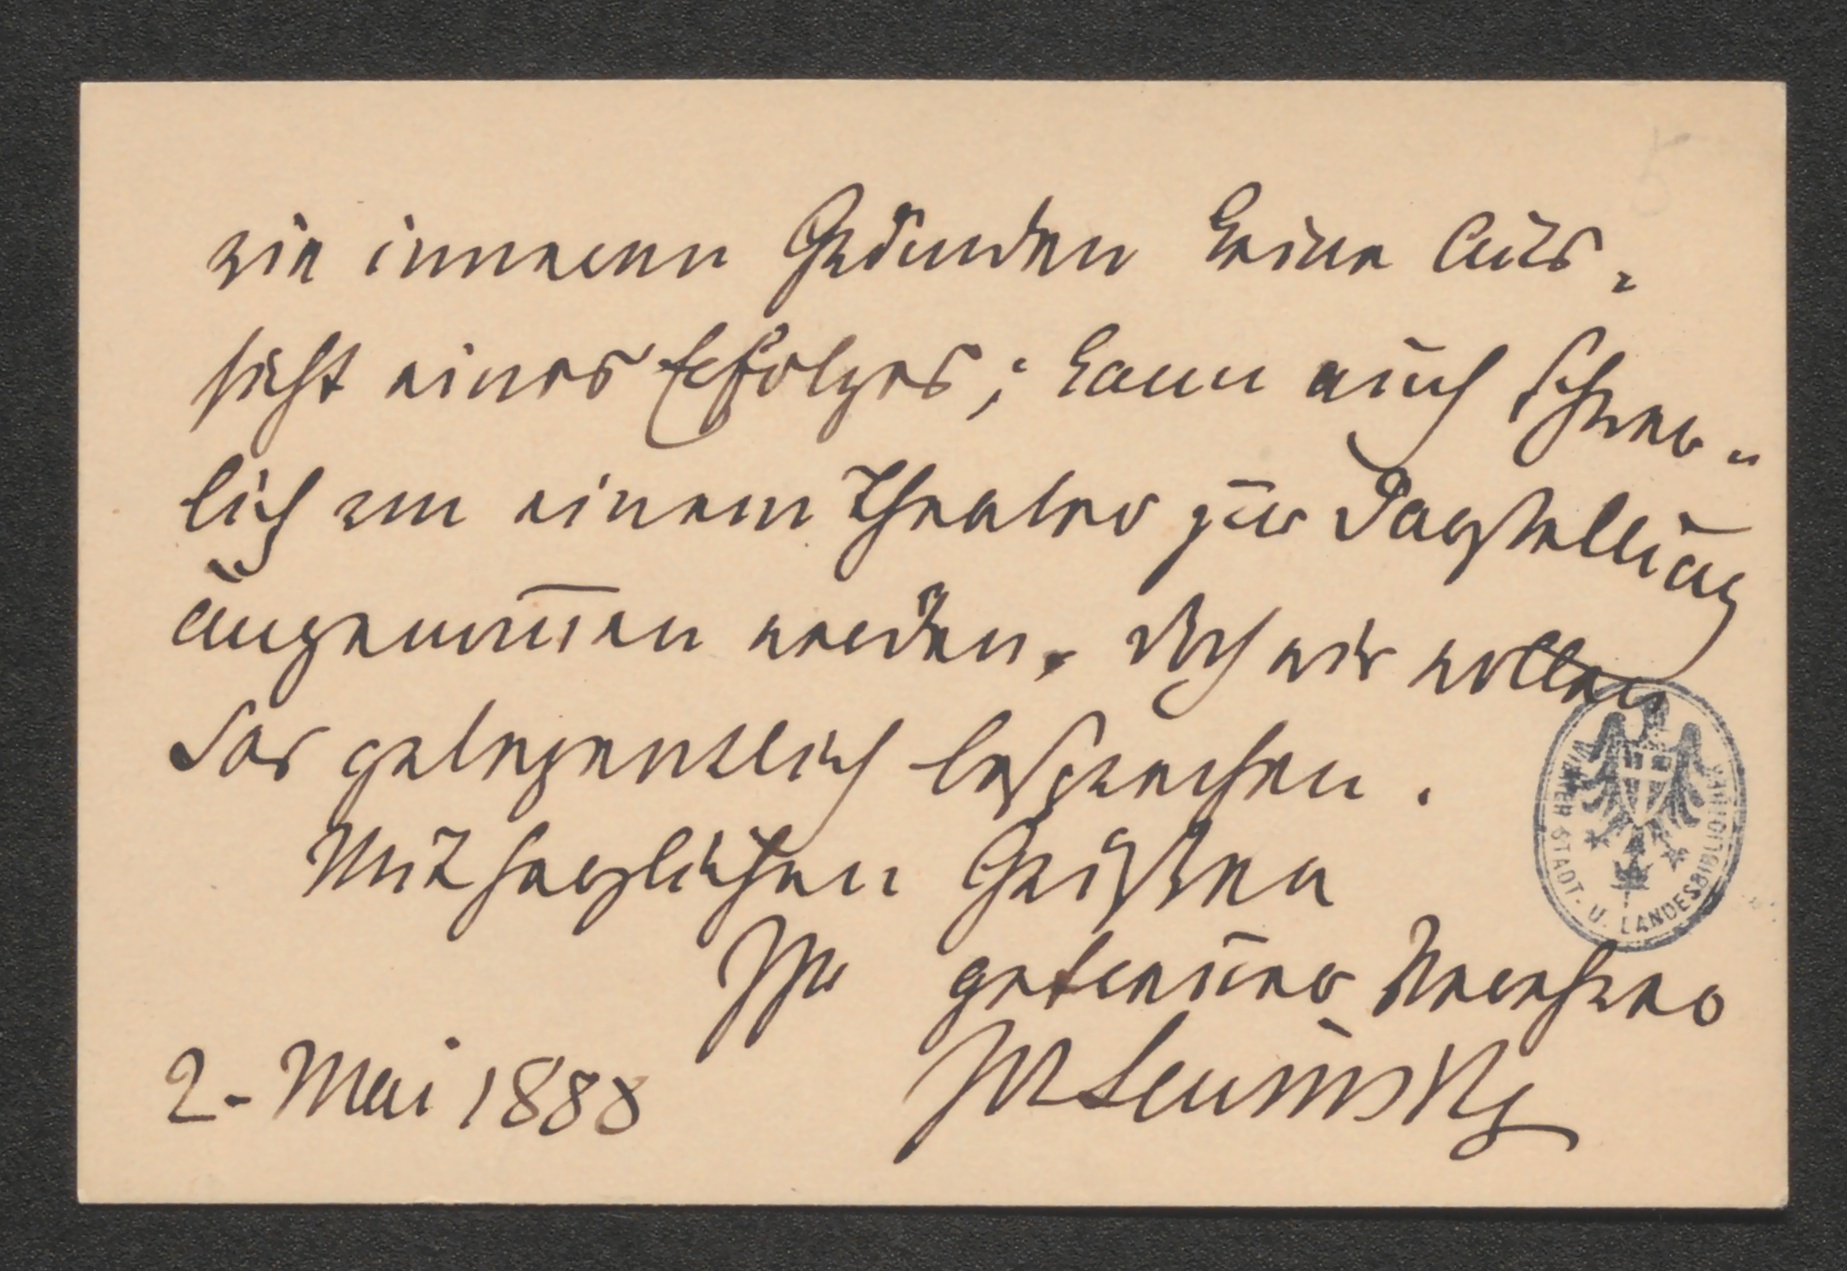 wie inneren Gründen keine Aus-
sicht eines Erfolges; kann auch schwer-
lich von einem Theater zur Darstellung
angenommen werden. Doch wir wollen
das gelegentlich besprechen.
Mit herzlichen Grüßen
Ihr getreuer Verehrer
Jos Lewinsky
2. Mai 1888
WIENER STADT- U. LANDESBIBLIOTHEK
5